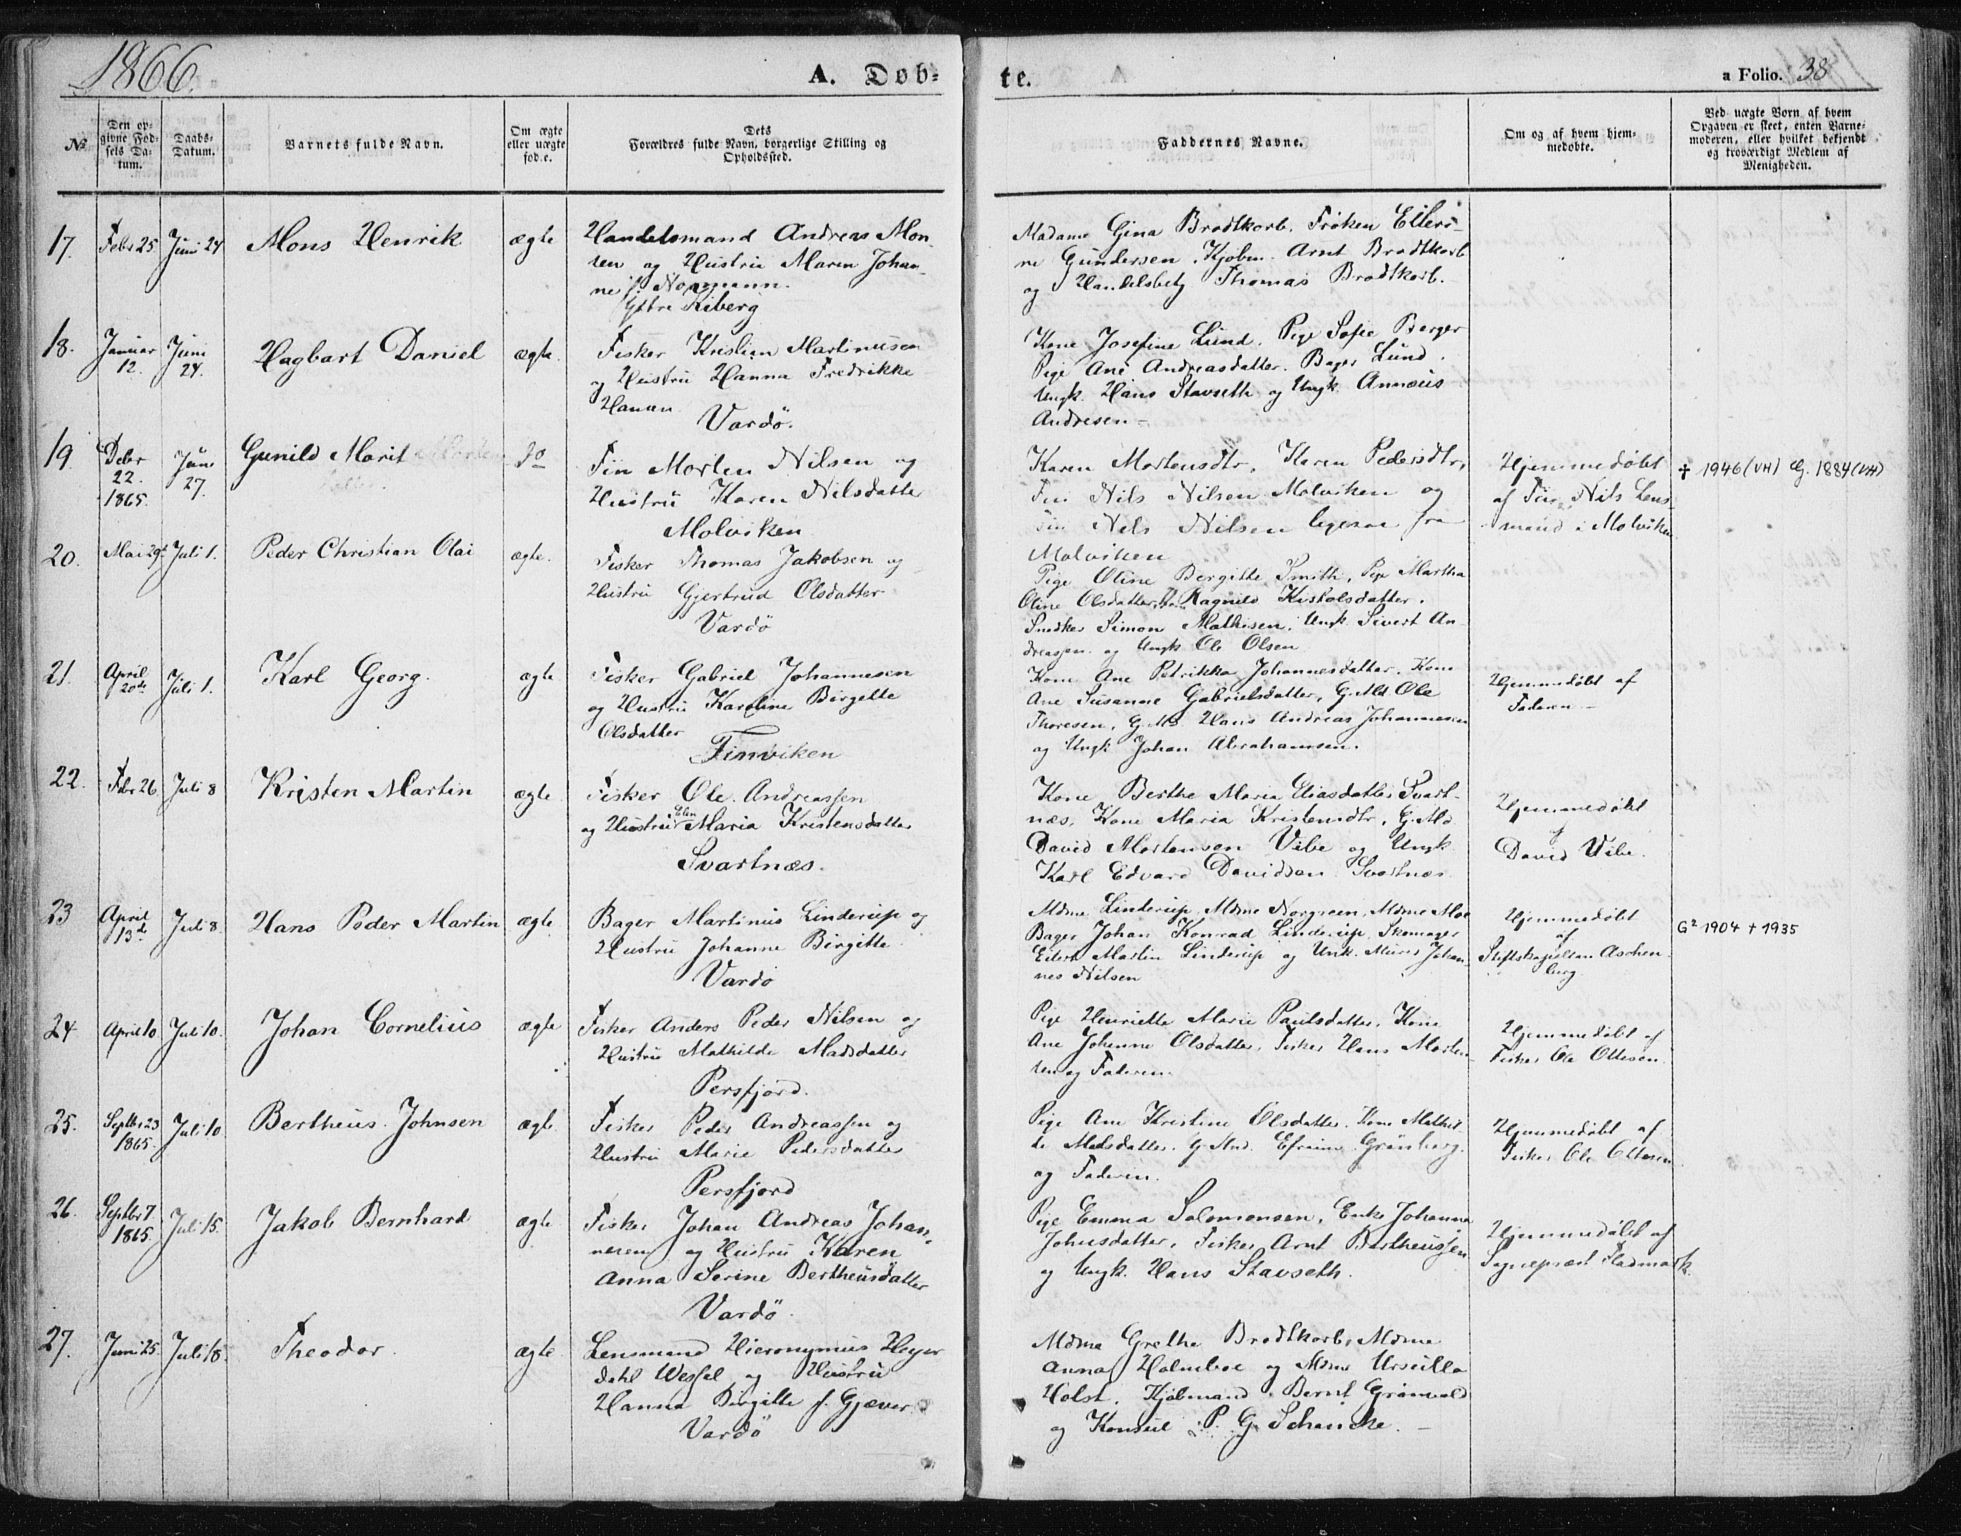 1866.
A. Døb-
te.
a Folio. 38
No
Den op-
givne Fød-
sels Da-
tum.
Daabs-
Datum.
Barnets fulde Navn.
Om ægte
eller uægte
fød.e.
Dets
Forældres fulde Navn, borgerlige Stilling og
Opholdssted.
Faddernes Navne.
Om og af hvem hjem-
medøbte.
Ved uægte Børn af hvem
Opgaven er skeet, enten Barne-
moderen, eller hvilket bekjendt
og troværdigt Medlem af
Menigheden.
17. Febr 25 Juni 24 Mons Henrik ægte
Handelsmand Andreas Mon-
sen og Hustru Maren Johan-
ne f. Normann.
Yttre Kiberg
Madame Gina Brodtkorb. Frøken Elleri-
ne Gundersen. Kjøbm. Arnt Brodtkorb
og Handelsbetj Thomas Brodtkorb.
18. Januar 12. Juni 24. Hagbart Daniel ægte.
Fisker Kristian Martinusen
og Hustru Hanna Fredrikke
Hansen
Vardö.
Kone Josefine Lund. Pige Sofie Berger
Pige Ane Andreasdatter. Bager Lund.
Ungk. Hans Stavseth og Ungk. Annæus
Andresen
19 Debr 22. 1865. Juni 27. Gunild Marit do
Fin Morten Nilsen og
Hustru Karen Nilsdatter
Molviken
Karen Mortensdtr, Karen Pedersdtr,
Fin Nils Nilsen Molviken og
Fin Nils Nilsen ligesaa fra
Molviken
Hjemmedøbt
af Fin Nils Lens-
mand i Molviken
✝ 1946 (VH) G. 1884 (VH)
20. Mai 29t Juli 1. Peder Christian Olai ægte.
Fisker Thomas Jakobsen og
Hustru Gjertrud Olsdatter
Vardö
Pige Oline Bergitte Smith, Pige Martha
Oline Olsdatter, Ragnild Kistolsdatter.
Snedker Simon Mathisen, Ungk. Sivert An-
dreassen. og Ungk Ole Olsen
21. April 20de Juli 1. Karl Georg. ægte
Fisker Gabriel Johannesen
og Hustru Karoline Birgitte
Olsdatter
Finviken
Kone Ane Petrikka Johannesdatter. Kone
Ane Susanne Gabrielsdatter, G.Md Ole
Thoresen, G.Md Hans Andreas Johannesen
og Ungk Johan Abrahamsen.
Hjemmedøbt af
Faderen
22. Febr 26 Juli 8 Kristen Martin ægte
Fisker Ole Andreassen
og Hustru Elen Maria Kristensdatter
Svartnæs.
Kone Berthe Maria Eliasdatter Svart-
næs, Kone Maria Kristensdtr, G.Md
David Mortensen Vibe og Ungk
Karl Edvard Davidsen Svartnæs
Hjemmedøbt
af
David Vibe.
23 April 13de Juli 8. Hans Peder Martin ægte
Bager Martinus Linderup og
Hustru Johanne Birgitte
Vardö
Mdme Linderup, Mdme Norgreen, Mdme Moe
Bager Johan Konrad Linderup, Skomager
Eilert Martin Linderup og Unk. Murer Johan-
nes Nilsen
Hjemmedøbt
af
Stiftskapellan Aschen-
berg.
G² 1904 ✝ 1935
24 April 10 Juli 10. Johan Cornelius ægte
Fisker Anders Peder Nilsen og
Hustru Mathilde Madsdatter
Persfjord.
Pige Henriette Marie Paulsdatter. Kone
Ane Johanne Olsdatter, Fisker Hans Morten-
sen og Faderen.
Hjemmedøbt af
Fisker Ole Ottesen.
25. Septbr 23 1865. Juli 10 Bertheus Johnsen ægte
Fisker Peder Andreassen og
Hustru Marie Pedersdatter
Persfjord
Pige Ane Kristine Olsdatter. Kone Mathil-
de Madsdatter. G.Md. Efraim Grönberg
og Faderen.
Hjemmedøbt af
Fisker Ole Ottesen
26. Septbr 7 1865. Juli 15. Jakob Bernhard ægte
Fisker Johan Andreas Johan-
nesen og Hustru Karen
Anna Serine Bertheusdatter
Vardö.
Pige Emma Salomonsen, Enke Johanna
Johnsdatter, Fisker Arnt Bertheussen
og Ungk. Hans Stavseth.
Hjemmedøbt af
Sognepræst Fladmark
27. Juni 25. Juli 18. Theodor. ægte
Lensmand Hieronymus Heyer-
dahl Wessel og Hustru
Hanna Birgitte f. Gjæver
Vardö
Mdme Grethe Brodtkorb, Mdme
Anna Holmboe og Mdme Ursulla
Holst. Kjøbmand Bernt Grönvold
og Konsul P. G. Schancke.